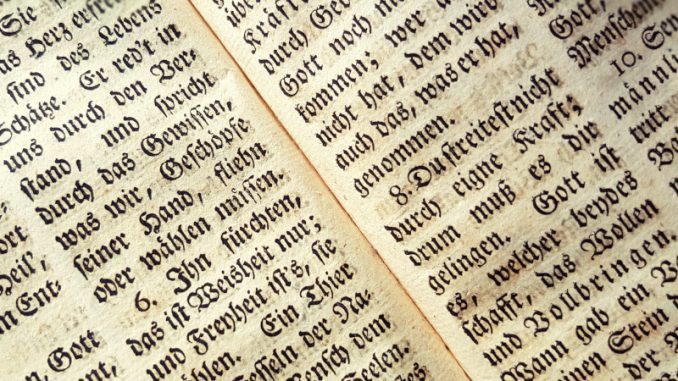 ort
Ent-
Gott
Sie
Herz
sind des Lebens
Schätze. Er red't in
uns durch den Ver-
stand, und spricht
durch das Gewissen,
was wir, Geschöpfe
seiner Hand, fliehn
oder wählen müssen.
6. Ihn fürchten,
das ist Weisheit nur;
und Freyheit ists, sie
Ein Thier
der Na-
dem
Seelen-
durch
Gott noch
kommen; wer
nicht hat, dem wird
auch das, was er hat,
genommen.
8. Du streitest nicht
durch eigne Kraft;
drum muß es dir
gelingen. Gott ist
es, welcher beydes
schafft, das Wollen
und Vollbringen.
Wann gab ein
einen Stein
Gott,
10.
männli
tritt